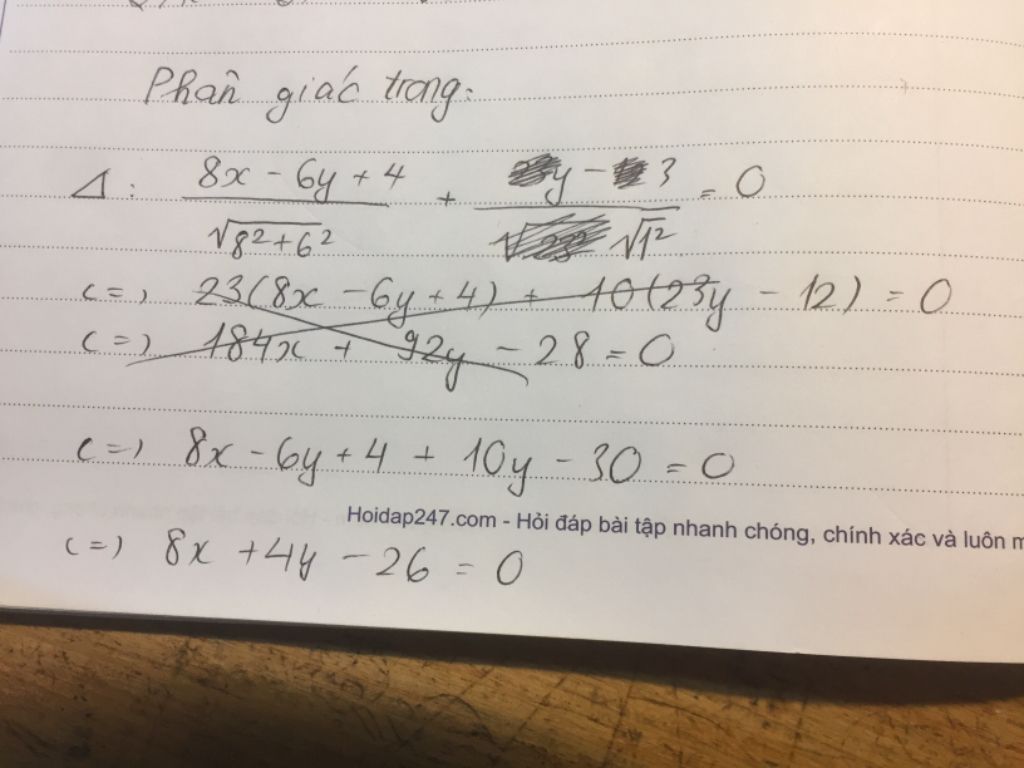 Phân giác trong:
Δ: (8x - 6y + 4)/√(8²+6²) + (y - 3)/√1² = 0
<=> 23(8x - 6y + 4) + 10(23y - 12) = 0
<=> 184x + 92y - 28 = 0
<=> 8x - 6y + 4 + 10y - 30 = 0
Hoidap247.com - Hỏi đáp bài tập nhanh chóng, chính xác và luôn
<=> 8x + 4y - 26 = 0